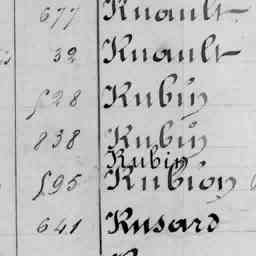 677 Ruault
32 Ruault
528 Rubin
838 Rubin
Rubin
595 Rubion
641 Rusard